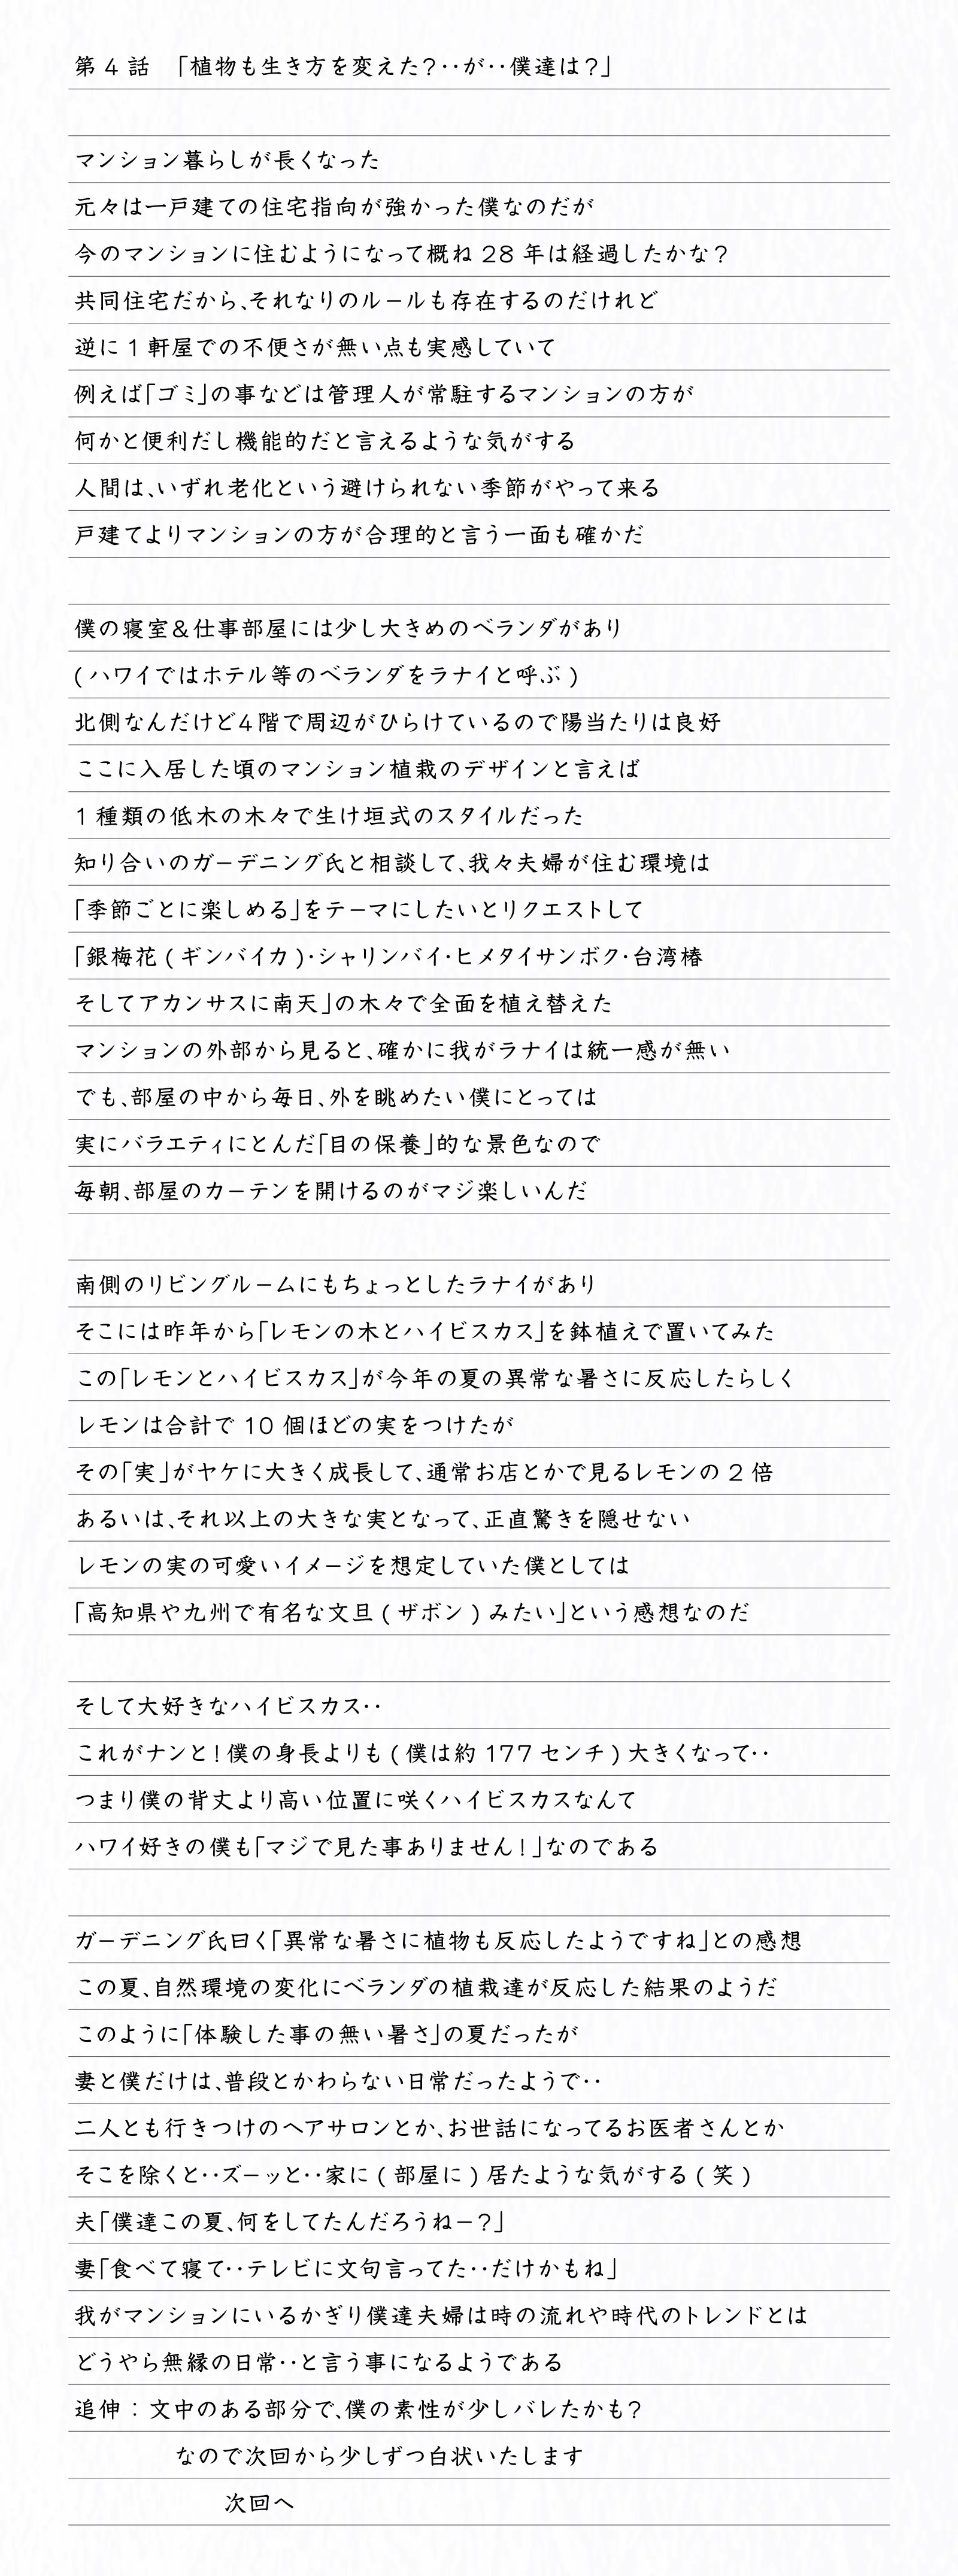 第 4 話　「植物も生き方を変えた？‥が‥僕達は？」
マンション暮らしが長くなった
元々は一戸建ての住宅指向が強かった僕なのだが
今のマンションに住むようになって概ね 28 年は経過したかな？
共同住宅だから、それなりのルールも存在するのだけれど
逆に 1 軒屋での不便さが無い点も実感していて
例えば「ゴミ」の事などは管理人が常駐するマンションの方が
何かと便利だし機能的だと言えるような気がする
人間は、いずれ老化という避けられない季節がやって来る
戸建てよりマンションの方が合理的と言う一面も確かだ
僕の寝室＆仕事部屋には少し大きめのベランダがあり
( ハワイではホテル等のベランダをラナイと呼ぶ )
北側なんだけど4階で周辺がひらけているので陽当たりは良好
ここに入居した頃のマンション植栽のデザインと言えば
1 種類の低木の木々で生け垣式のスタイルだった
知り合いのガーデニング氏と相談して、我々夫婦が住む環境は
「季節ごとに楽しめる」をテーマにしたいとリクエストして
「銀梅花 ( ギンバイカ )・シャリンバイ・ヒメタイサンボク・台湾椿
そしてアカンサスに南天」の木々で全面を植え替えた
マンションの外部から見ると、確かに我がラナイは統一感が無い
でも、部屋の中から毎日、外を眺めたい僕にとっては
実にバラエティにとんだ「目の保養」的な景色なので
毎朝、部屋のカーテンを開けるのがマジ楽しいんだ
南側のリビングルームにもちょっとしたラナイがあり
そこには昨年から「レモンの木とハイビスカス」を鉢植えで置いてみた
この「レモンとハイビスカス」が今年の夏の異常な暑さに反応したらしく
レモンは合計で 10 個ほどの実をつけたが
その「実」がヤケに大きく成長して、通常お店とかで見るレモンの 2 倍
あるいは、それ以上の大きな実となって、正直驚きを隠せない
レモンの実の可愛いイメージを想定していた僕としては
「高知県や九州で有名な文旦 ( ザボン ) みたい」という感想なのだ
そして大好きなハイビスカス‥
これがナンと！僕の身長よりも ( 僕は約 177 センチ ) 大きくなって‥
つまり僕の背丈より高い位置に咲くハイビスカスなんて
ハワイ好きの僕も「マジで見た事ありません！」なのである
ガーデニング氏曰く「異常な暑さに植物も反応したようですね」との感想
この夏、自然環境の変化にベランダの植栽達が反応した結果のようだ
このように「体験した事の無い暑さ」の夏だったが
妻と僕だけは、普段とかわらない日常だったようで‥
二人とも行きつけのヘアサロンとか、お世話になってるお医者さんとか
そこを除くと‥ズーッと‥家に ( 部屋に ) 居たような気がする ( 笑 )
夫「僕達この夏、何をしてたんだろうねー？」
妻「食べて寝て‥テレビに文句言ってた‥だけかもね」
我がマンションにいるかぎり僕達夫婦は時の流れや時代のトレンドとは
どうやら無縁の日常‥と言う事になるようである
追伸 ： 文中のある部分で、僕の素性が少しバレたかも？
なので次回から少しずつ白状いたします
次回へ